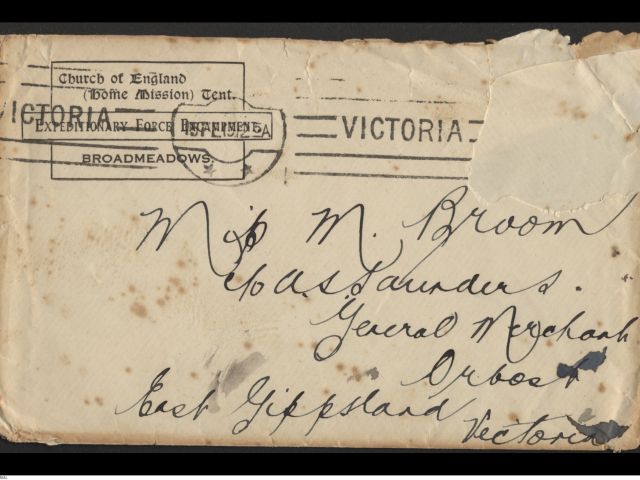 Church of England
(Home Mission) Tent.
EXPEDITIONARY FORCE ENCAMPMENT,
BROADMEADOWS.
VICTORIA
VICTORIA
Miss M. Broom
c/o A S Saunders.
General Merchant
Orbost
East Gippsland
Victoria